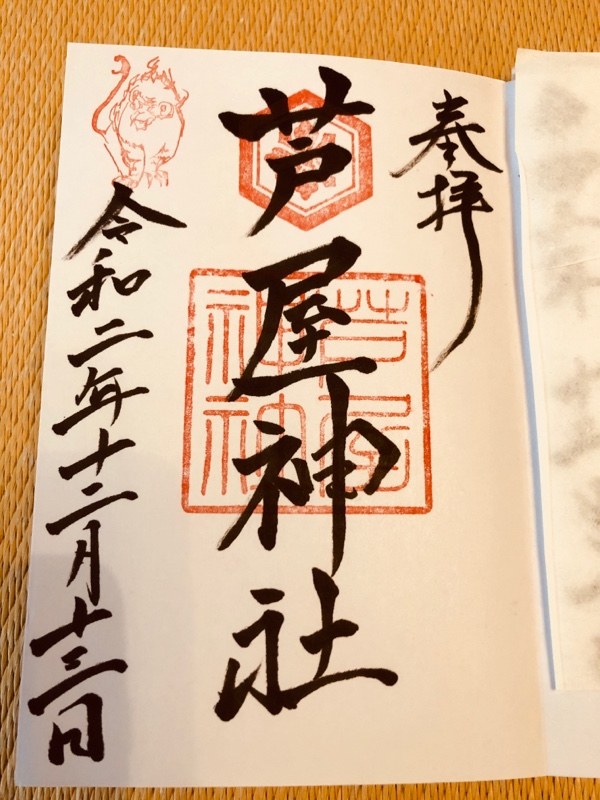 奉拝
芦屋神社
令和二年十二月十三日